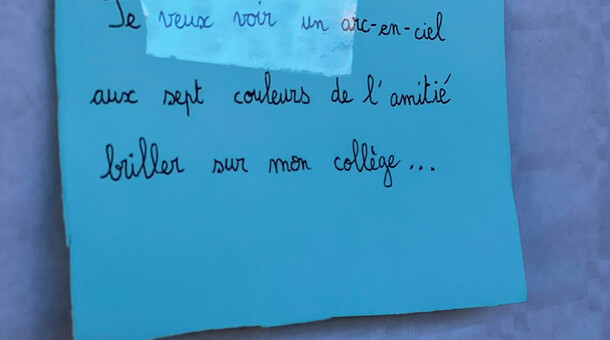 Je veux voir un arc-en-ciel
aux sept couleurs de l'amitié
briller sur mon collège...